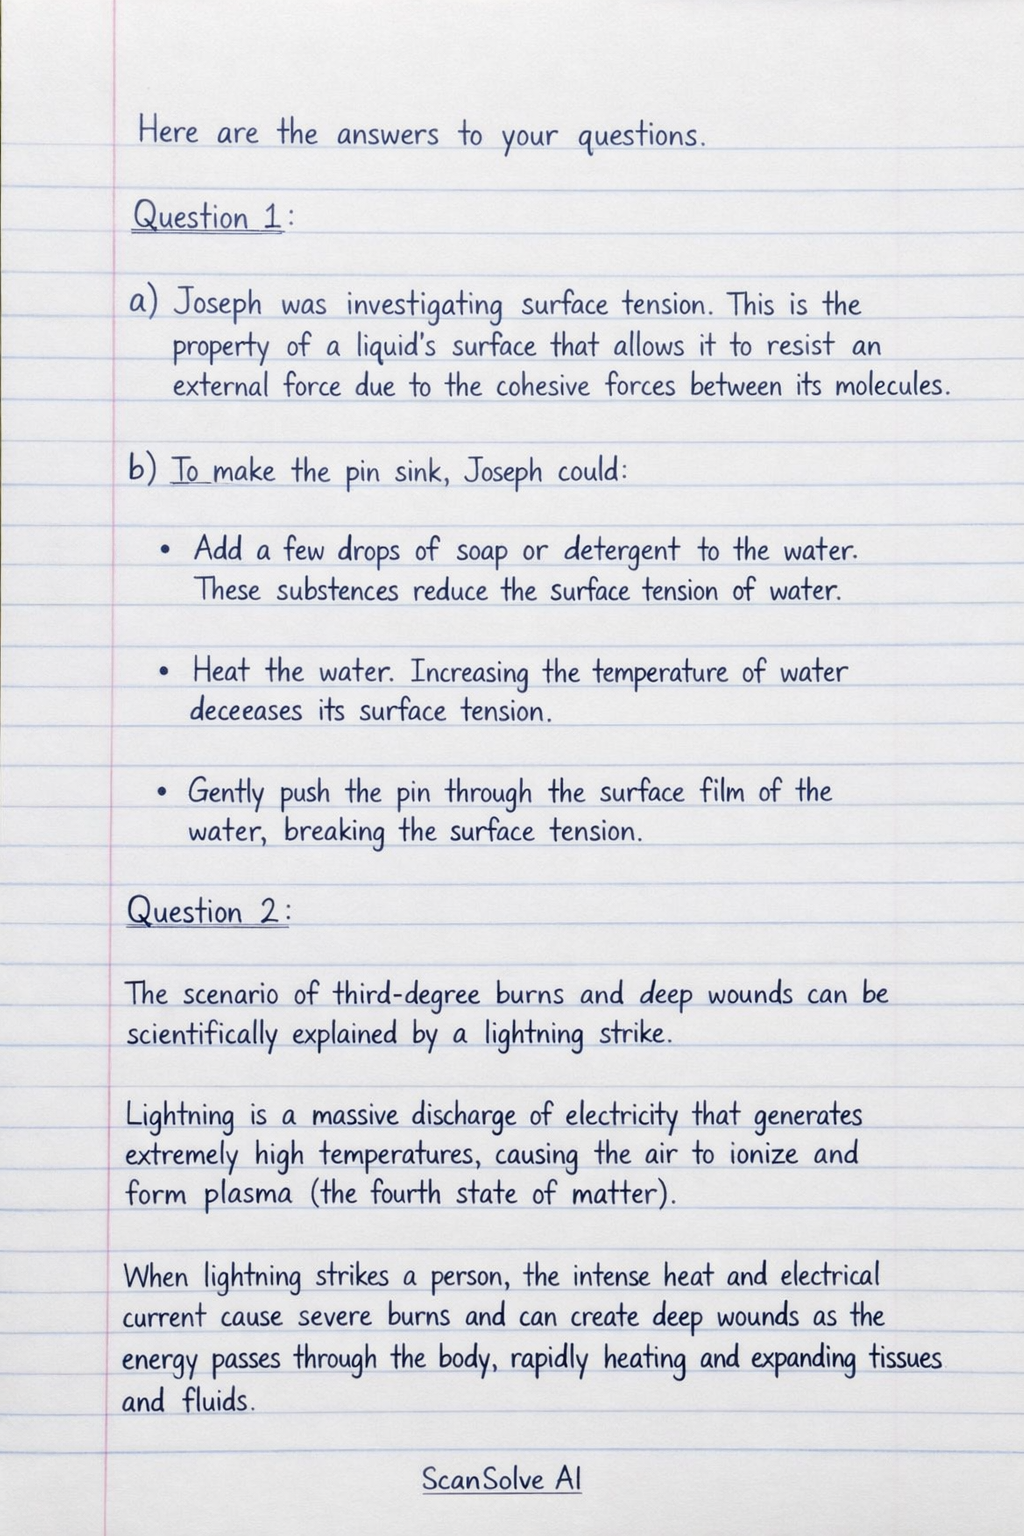 Here are the answers to your questions.
Question 1:
a) Joseph was investigating surface tension. This is the
property of a liquid's surface that allows it to resist an
external force due to the cohesive forces between its molecules.
b) To make the pin sink, Joseph could:
• Add a few drops of soap or detergent to the water.
These substences reduce the surface tension of water.
• Heat the water. Increasing the temperature of water
deceeases its surface tension.
• Gently push the pin through the surface film of the
water, breaking the surface tension.
Question 2:
The scenario of third-degree burns and deep wounds can be
scientifically explained by a lightning strike.
Lightning is a massive discharge of electricity that generates
extremely high temperatures, causing the air to ionize and
form plasma (the fourth state of matter).
When lightning strikes a person, the intense heat and electrical
current cause severe burns and can create deep wounds as the
energy passes through the body, rapidly heating and expanding tissues
and fluids.
ScanSolve AI